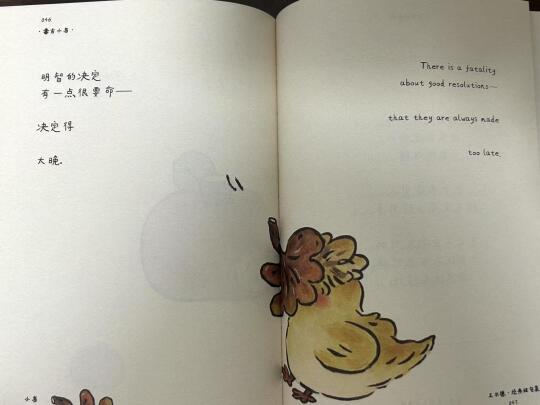 046
·毒舌小鸟·
明智的决定
有一点很要命——
决定得
太晚.
There is a fatality
about good resolutions—
that they are always made
too late.
小鸟
王尔德·经典
047